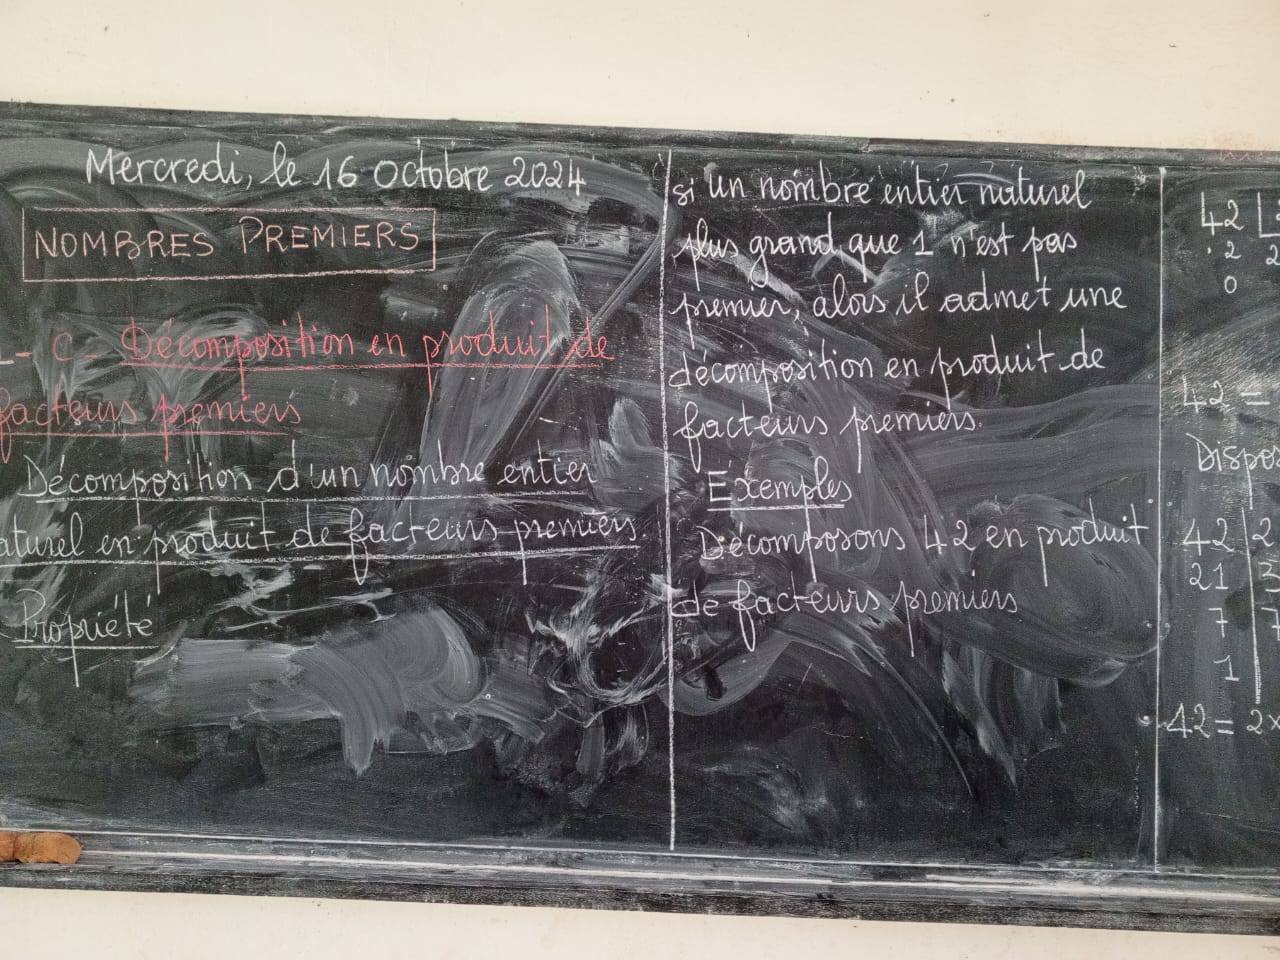 Mercredi, le 16 Octobre 2024
NOMBRES PREMIERS
- C - Décomposition en produit de
facteurs premiers
Décomposition d'un nombre entier
aturel en produit de facteurs premiers
Propriété
si un nombre entier naturel
plus grand que 1 n'est pas
premier, alors il admet une
décomposition en produit de
facteurs premiers.
Exemples
Décomposons 42 en produit
de facteurs premiers
42
2 2
0
42 =
Dispos
42 | 2
21 | 3
7 | 7
1 |
42 = 2 ×